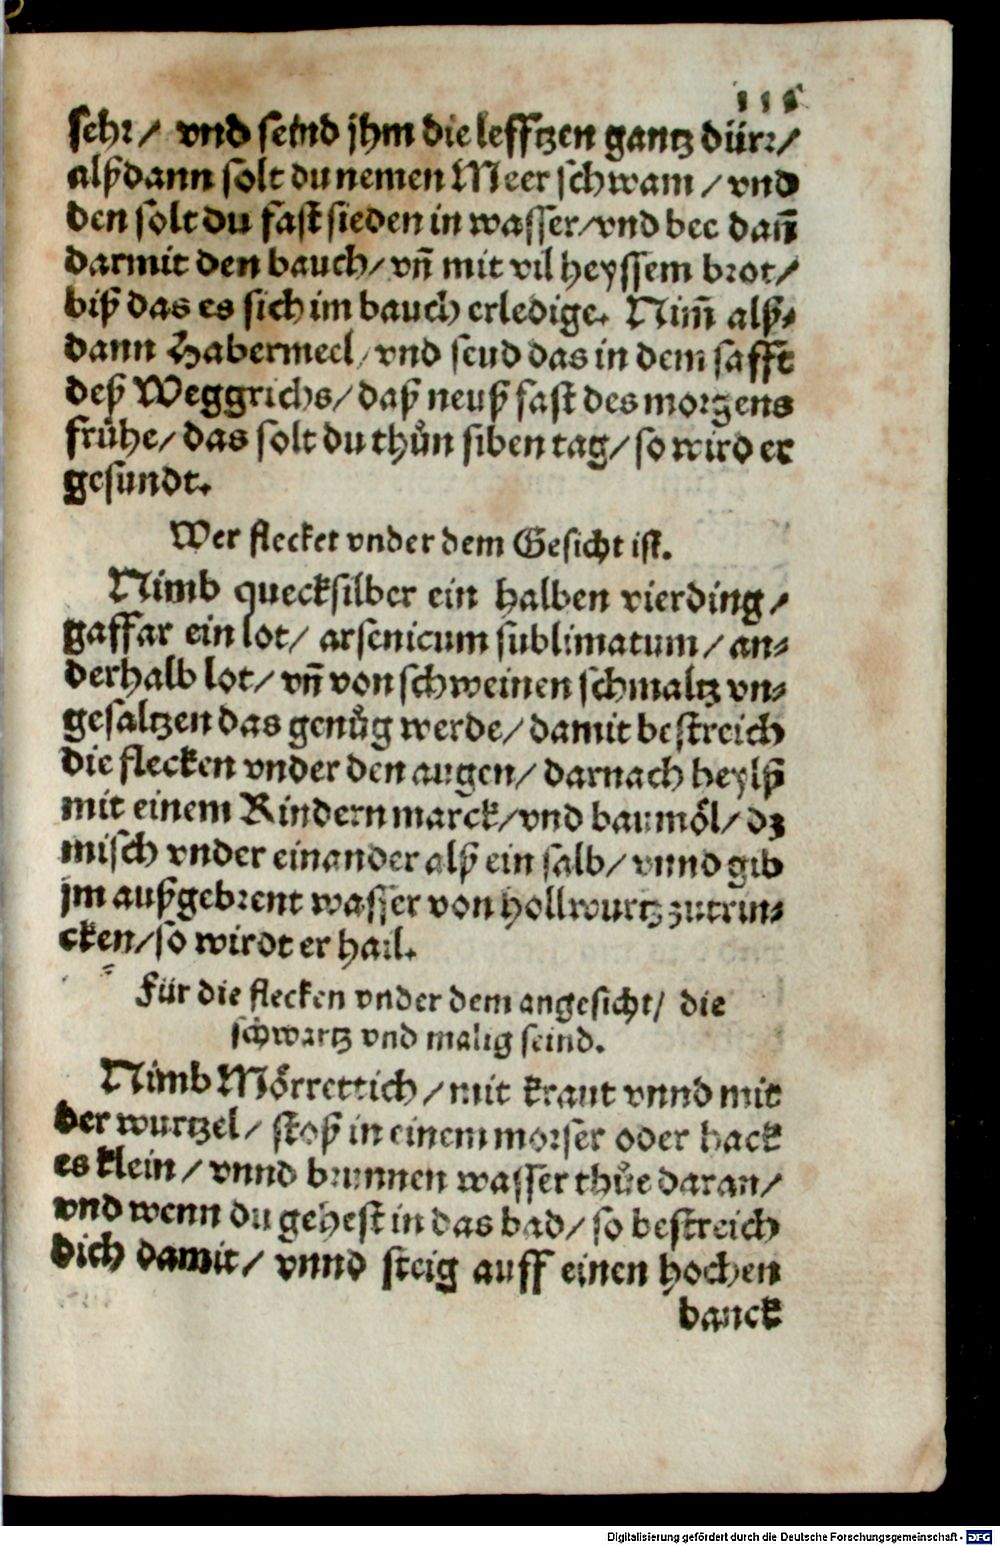 115
sehr/ vnd seind jhm die lefftzen gantz dürr/
alßdann solt du nemen Meerschwam/ vnd
den solt du fast sieden in wasser/ vnd bec dañ
darmit den bauch/ vñ mit vil heyssem brot/
biß das es sich im bauch erledige. Nim̃ alß-
dann Habermeel/ vnd seud das in dem safft
deß Weggrichs/ daß neuß fast des morgens
frühe/ das solt du thůn siben tag/ so wird er
gesundt.
Wer flecket vnder dem Gesicht ist.
Nimb quecksilber ein halben vierding/
gaffar ein lot/ arsenicum sublimatum/ an-
derhalb lot/ vñ von schweinen schmaltz vn-
gesaltzen das genůg werde/ damit bestreich
die flecken vnder den augen/ darnach heylß
mit einem Rindern marck/ vnd baumöl/ dz
misch vnder einander alß ein salb/ vnnd gib
jm außgebrent wasser von hollwurtz zutrin-
cken/ so wirdt er hail.
Für die flecken vnder dem angesicht/ die
schwartz vnd malig seind.
Nimb Mörrettich/ mit kraut vnnd mit
der wurtzel/ stoß in einem morser oder hack
es klein/ vnnd brunnen wasser thůe daran/
vnd wenn du gehest in das bad/ so bestreich
dich damit/ vnnd steig auff einen hochen
banck
Digitalisierung gefördert durch die Deutsche Forschungsgemeinschaft - DFG